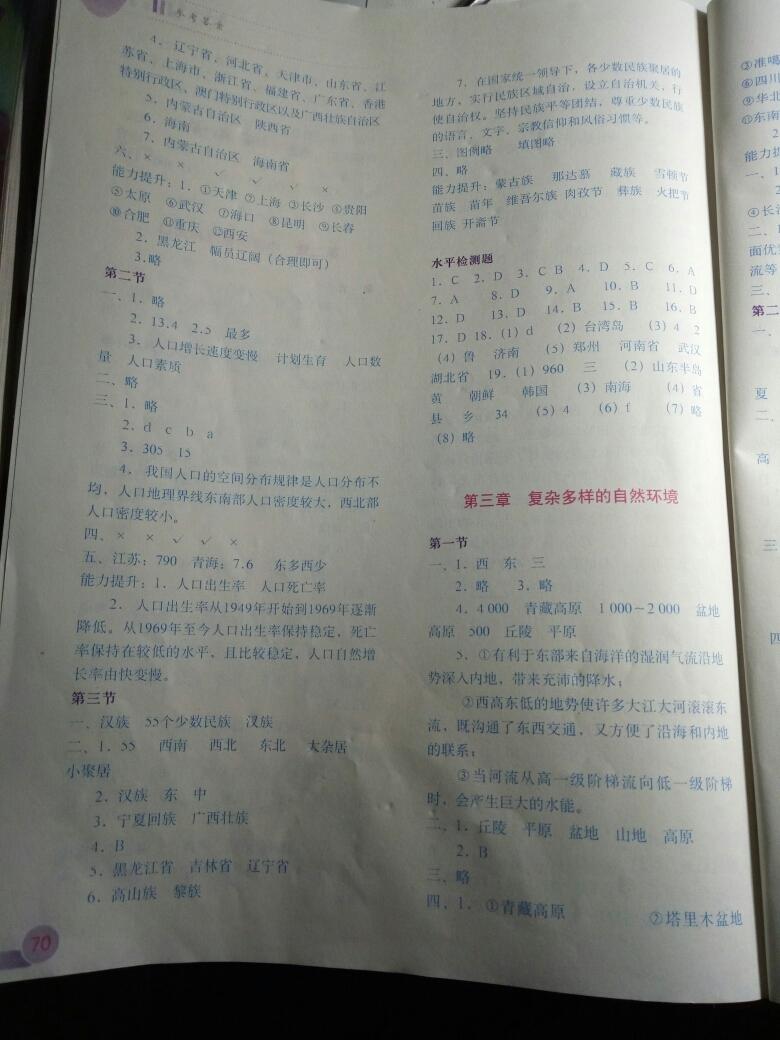 参考答案
4. 辽宁省、河北省、天津市、山东省、江
苏省、上海市、浙江省、福建省、广东省、香港
特别行政区、澳门特别行政区以及广西壮族自治区
5. 内蒙古自治区 陕西省
6. 海南
7. 内蒙古自治区 海南省
六、× × √ √ √ ×
能力提升：1. ①天津 ②上海 ③长沙 ④贵阳
⑤太原 ⑥武汉 ⑦海口 ⑧昆明 ⑨长春
⑩合肥 ⑪重庆 ⑫西安
2. 黑龙江 幅员辽阔（合理即可）
3. 略
第二节
一、1. 略
2. 13.4 2.5 最多
3. 人口增长速度变慢 计划生育 人口数
量 人口素质
二、略
三、1. 略
2. d c b a
3. 305 15
4. 我国人口的空间分布规律是人口分布不
均，人口地理界线东南部人口密度较大，西北部
人口密度较小。
四、× × √ √ ×
五、江苏：790 青海：7.6 东多西少
能力提升：1. 人口出生率 人口死亡率
2. 人口出生率从1949年开始到1969年逐渐
降低。从1969年至今人口出生率保持稳定，死亡
率保持在较低的水平，且比较稳定，人口自然增
长率由快变慢。
第三节
一、汉族 55个少数民族 汉族
二、1. 55 西南 西北 东北 大杂居
小聚居
2. 汉族 东 中
3. 宁夏回族 广西壮族
4. B
5. 黑龙江省 吉林省 辽宁省
6. 高山族 黎族
70
7. 在国家统一领导下，各少数民族聚居的
地方，实行民族区域自治，设立自治机关，行
使自治权。坚持民族平等团结，尊重少数民族
的语言、文字、宗教信仰和风俗习惯等。
三、图例略 填图略
四、略
能力提升：蒙古族 那达慕 藏族 雪顿节
苗族 苗年 维吾尔族 肉孜节 彝族 火把节
回族 开斋节
水平检测题
1. C 2. D 3. C B 4. D 5. C 6. A
7. A 8. D 9. A 10. B 11. D
12. D 13. D 14. B 15. B 16. B
17. D 18.（1）d （2）台湾岛 （3）4 2
（4）鲁 济南 （5）郑州 河南省 武汉
湖北省 19.（1）960 三 （2）山东半岛
黄 朝鲜 韩国 （3）南海 （4）省
县 乡 34 （5）4 （6）f （7）略
（8）略
第三章 复杂多样的自然环境
第一节
一、1. 西 东 三
2. 略 3. 略
4. 4 000 青藏高原 1 000~2 000 盆地
高原 500 丘陵 平原
5. ①有利于东部来自海洋的湿润气流沿地
势深入内地，带来充沛的降水；
②西高东低的地势使许多大江大河滚滚东
流，既沟通了东西交通，又方便了沿海和内地
的联系；
③当河流从高一级阶梯流向低一级阶梯
时，会产生巨大的水能。
二、1. 丘陵 平原 盆地 山地 高原
2. B
三、略
四、1. ①青藏高原 ②塔里木盆地
③准噶
⑥四川
⑨华北
⑪东南
能力
一、1
④长
二、
面优
流等
三、
第二
一、
夏
二、
高
三
四